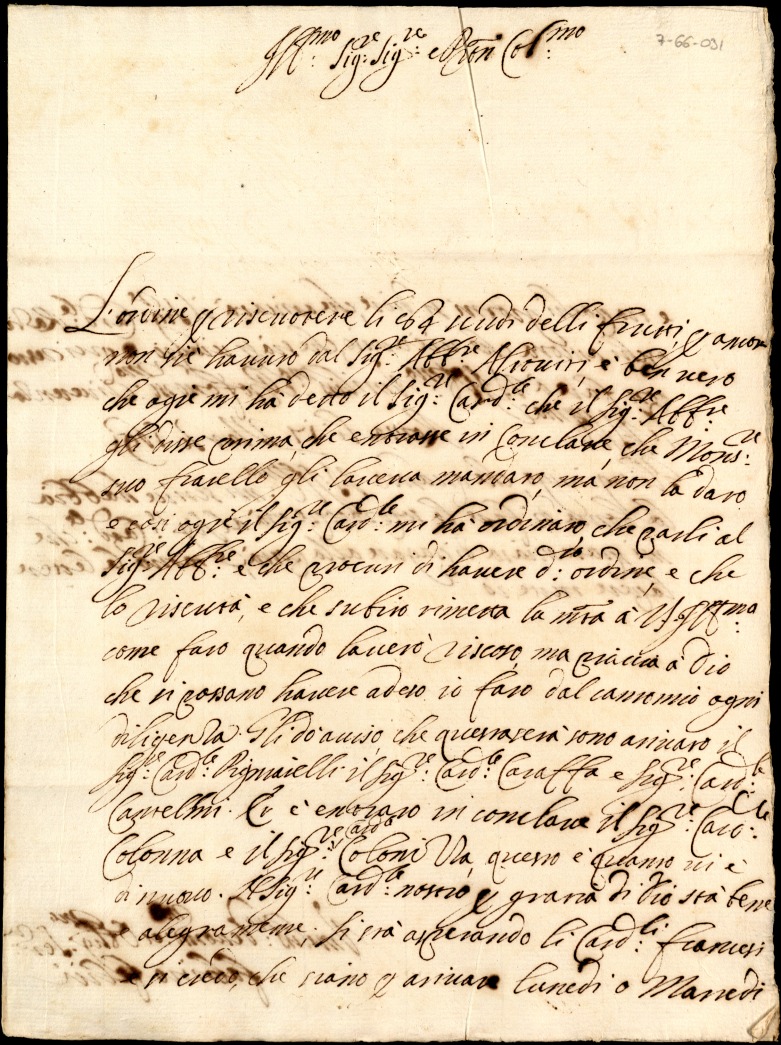 Ill:mo Sig:re Sig:re e Pron Col:mo
7-66-031
L'ordine p riscuotere li 64 scudi delli frutti, p ancora
non si è havuto dal Sig:re Abb:re Altoviti, è ben vero
che oggi mi hà detto il Sig:re Card:le che il Sig:re Abb:re
gli disse prima, che entrasse in Conclave, che Mons:re
suo fratello gli lasceva mandato, mà non la dato
e così oggi il Sig:re Card:le mi hà ordinato, che parli al
Sig:re Abb:re e che procuri di havere d:to ordine e che
lo riscuta, e che subito rimetta la mtà à V.S. Ill:ma
come farò quando laverò riscosso, ma piaccia à Dio
che si possano havere adeso io farò dal canto mio ogni
diligenza. Gli dò aviso, che questa sera sono arrivati il
Sig:re Card:le Pignatelli il Sig:re Card:le Caraffa e Sig:re Card:le
Cantelmi. Et è entrato in conclave il Sig:re Card:le
Colonna e il Sig:re Card:le Coloniz Va, questo è quanto vi è
di nuovo. Il Sig:re Card:le nostro, p gratia di Dio stà bene
e alegramente. Si stà aspetando li Card:li francesi
e si crede, che siano p arivare lunedi o Martedi